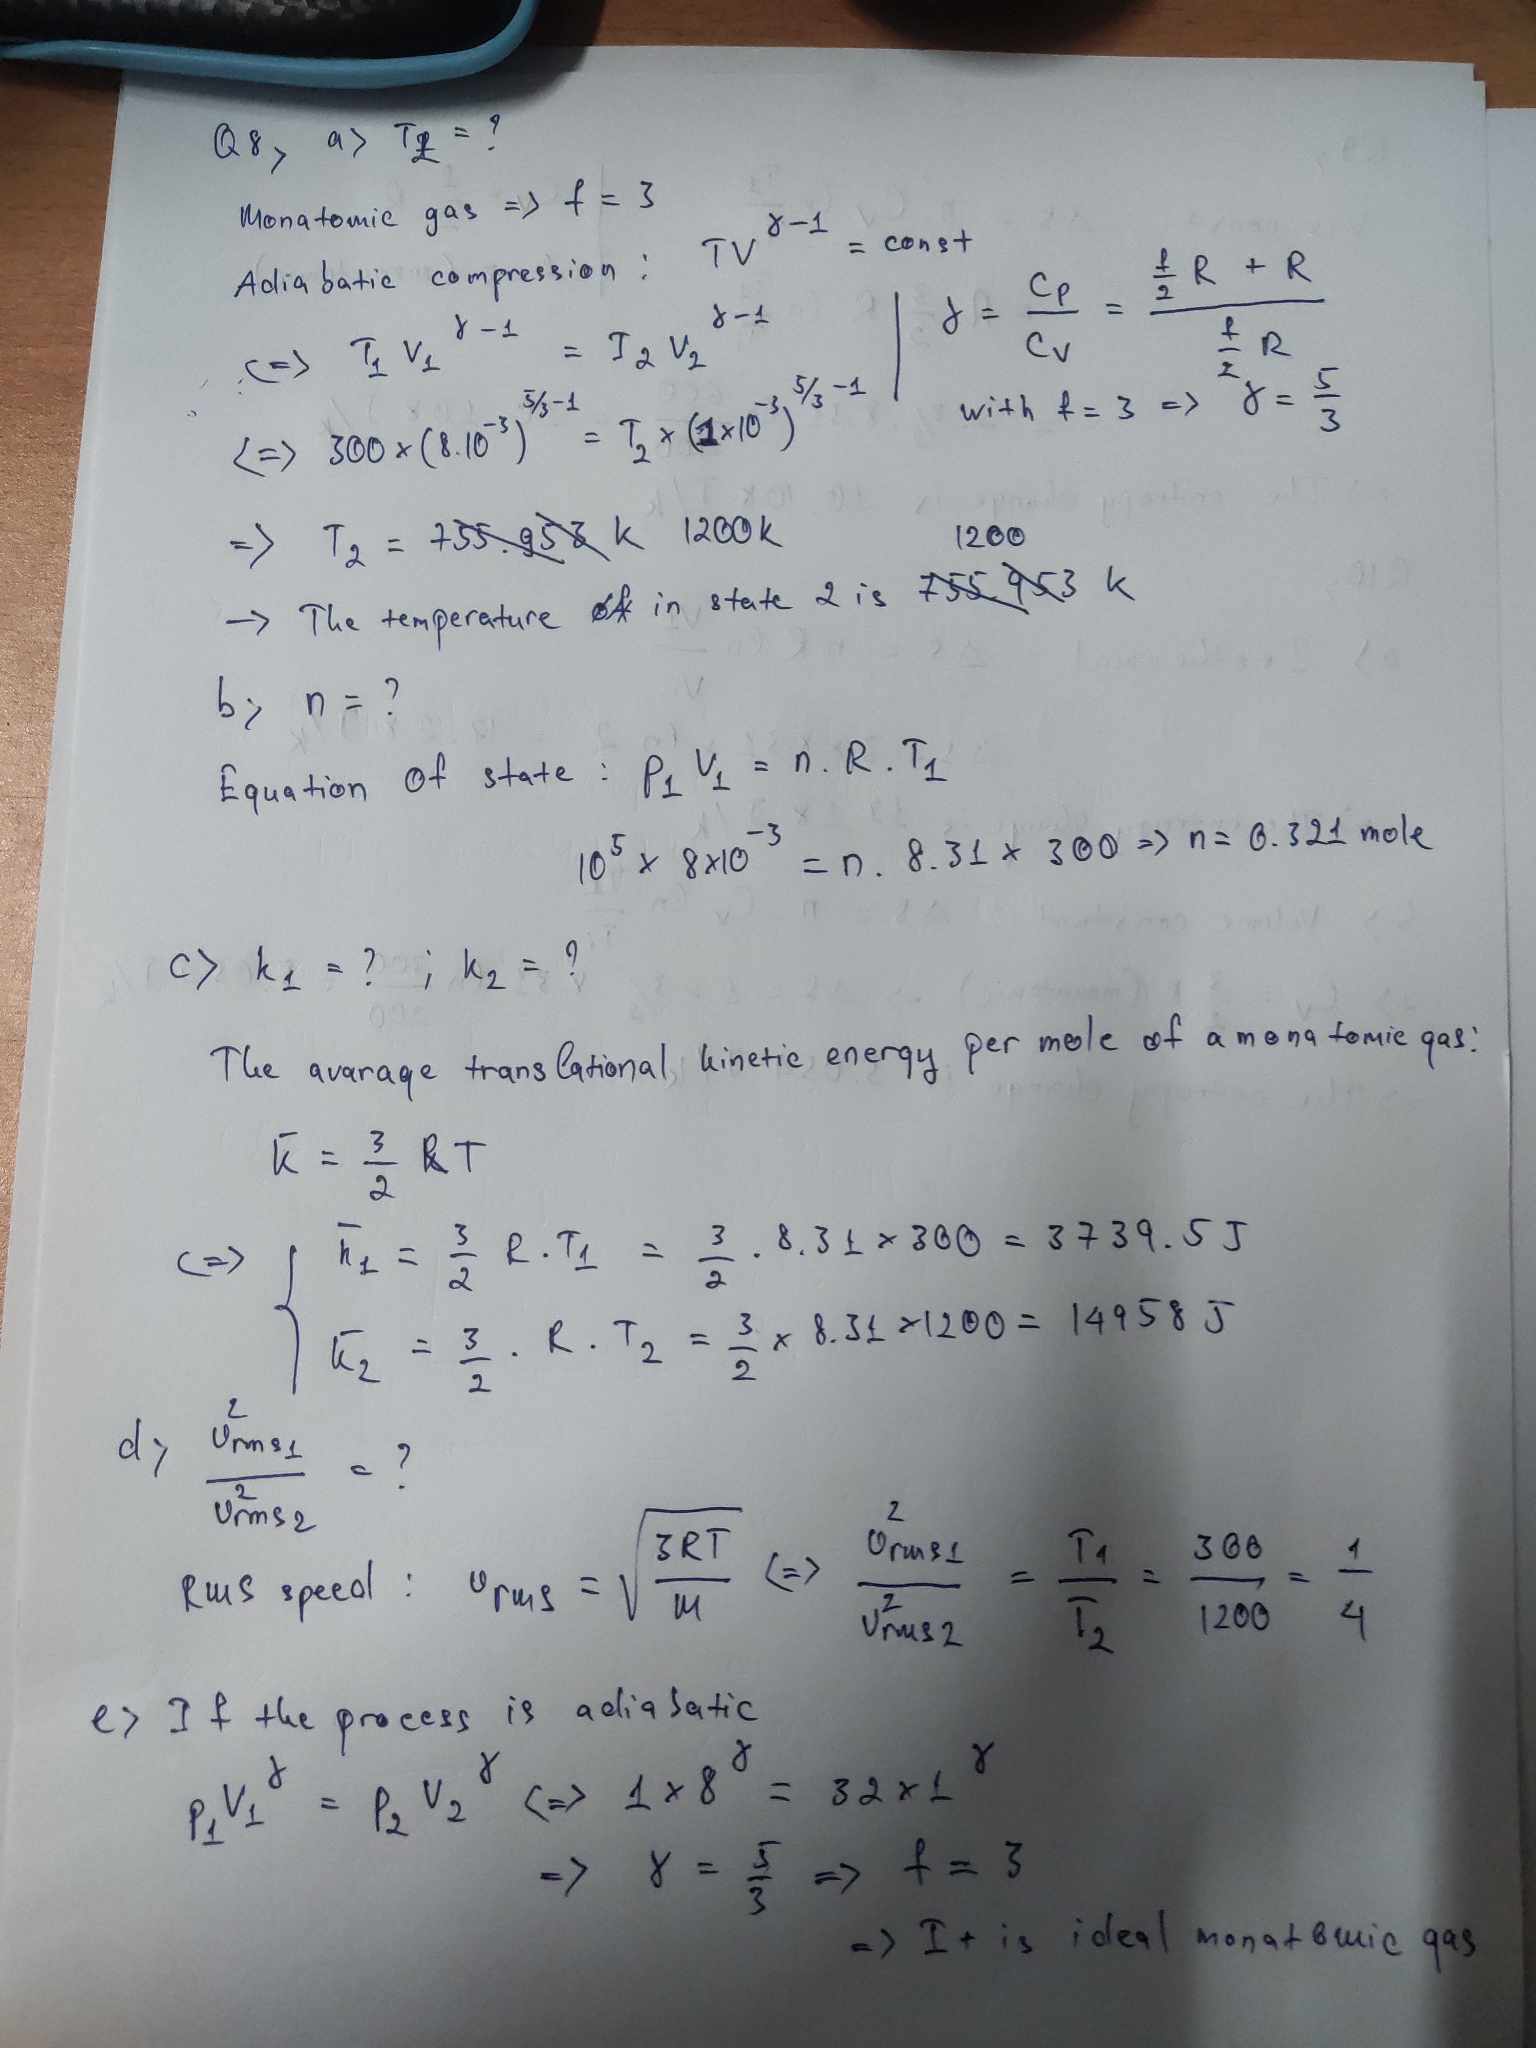 Q8, a> T2 = ?
Monatomic gas => f = 3
Adiabatic compression : TV^γ-1 = const
<=> T1 V1^γ-1 = T2 V2^γ-1 | γ = Cp/Cv = (f/2 R + R)/(f/2 R)
<=> 300 x (8.10^-3)^5/3-1 = T2 x (1x10^-3)^5/3-1 with f = 3 => γ = 5/3
=> T2 = 755.953 K 1200K
1200
-> The temperature of in state 2 is 755.953 K
b, n = ?
Equation of state : P1 V1 = n. R. T1
10^5 x 8x10^-3 = n. 8.31 x 300 => n = 0.321 mole
c> k1 = ? ; k2 = ?
The avarage translational kinetic energy per mole of a monatomic gas:
k̄ = 3/2 RT
<=> { k̄1 = 3/2 R.T1 = 3/2 . 8.31 x 300 = 3739.5 J
k̄2 = 3/2 . R. T2 = 3/2 x 8.31 x 1200 = 14958 J
d, v²rms1/v²rms2 = ?
RMS speed : vrms = √(3RT/M) <=> v²rms1/v²rms2 = T1/T2 = 300/1200 = 1/4
e> If the process is adiabatic
P1V1^γ = P2V2^γ <=> 1 x 8^γ = 32 x 1^γ
=> γ = 5/3 => f = 3
=> It is ideal monatomic gas